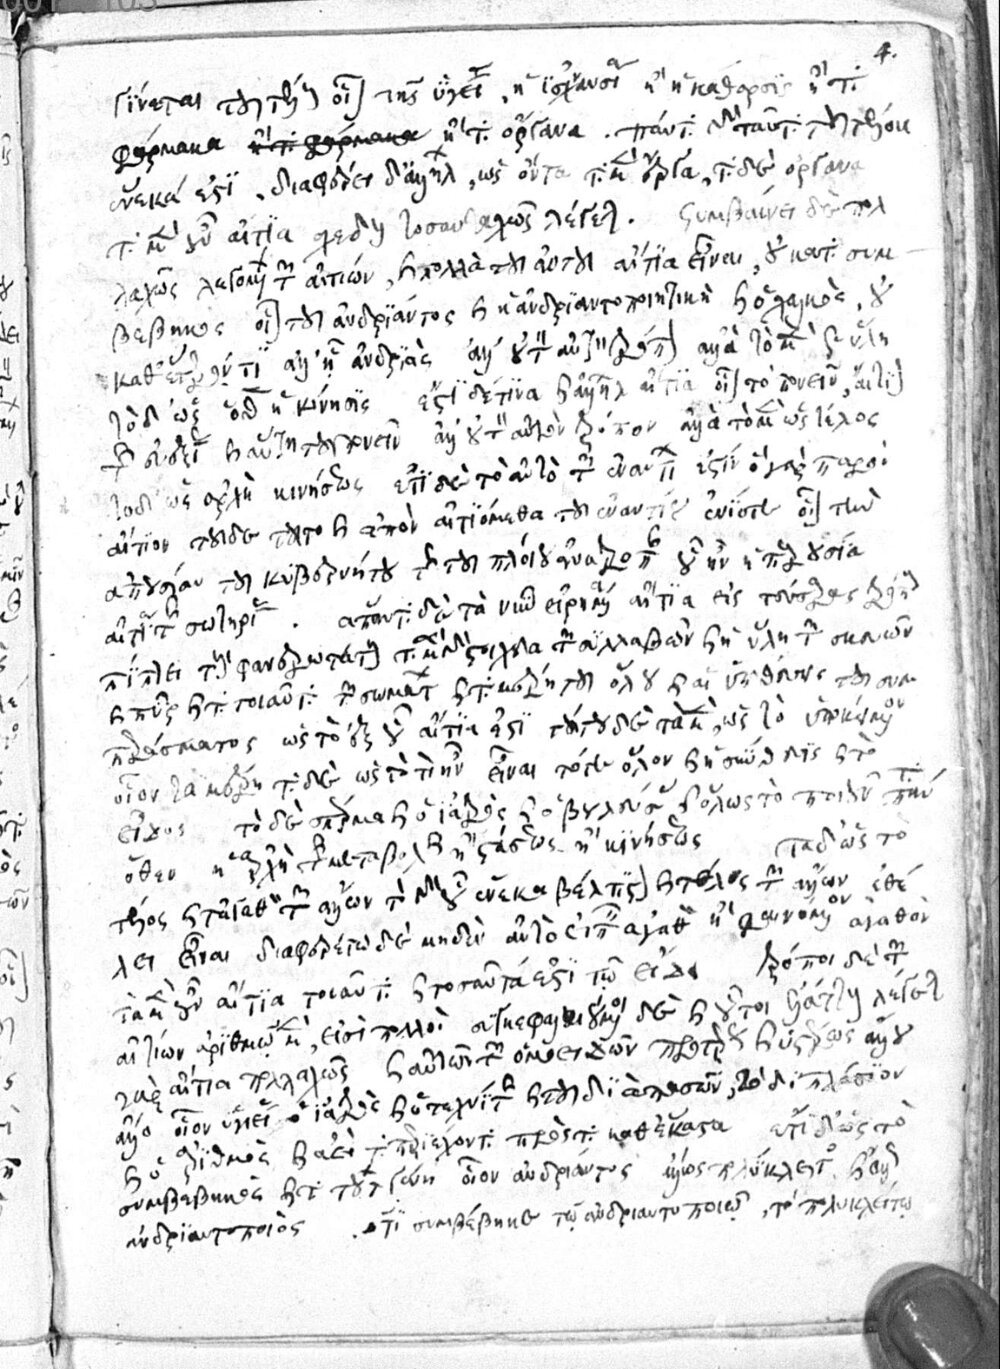 4.
γίνεται τοῦ τέλους οἷον τῆς ὑγιείας, ἡ ἰσχνασία ἢ ἡ κάθαρσις ἢ τὰ
φάρμακα ἢ τὰ φάρμακα ἢ τὰ ὄργανα . πάντα γὰρ ταῦτα τοῦ τέλους
ἕνεκά ἐστι . διαφέρει δ' ἀλλήλων, ὡς ὄντα τὰ μὲν ἔργα, τὰ δὲ ὄργανα
τὰ μὲν οὖν αἴτια σχεδὸν τοσαυταχῶς λέγεται . συμβαίνει δὲ πολ
λαχῶς λεγομένων τῶν αἰτίων, καὶ πολλὰ τοῦ αὐτοῦ αἴτια εἶναι, οὐ κατὰ συμ
βεβηκὸς οἷον τοῦ ἀνδριάντος καὶ ἡ ἀνδριαντοποιητικὴ καὶ ὁ χαλκὸς, οὐ
καθ' ἕτερόν τι ἀλλ' ᾗ ἀνδριὰς ἀλλ' οὐ τὸν αὐτὸν τρόπον ἀλλὰ τὸ μὲν ὡς ὕλη
τὸ δ' ὡς ὅθεν ἡ κίνησις ἔστι δέ τινα καὶ ἀλλήλων αἴτια οἷον τὸ πονεῖν, αἴτιον
τῆς εὐεξίας καὶ αὕτη τοῦ πονεῖν ἀλλ' οὐ τὸν αὐτὸν τρόπον ἀλλὰ τὸ μὲν ὡς τέλος
τὸ δ' ὡς ἀρχὴ κινήσεως ἔτι δὲ τὸ αὐτὸ τῶν ἐναντίων ἐστίν ὃ γὰρ παρὸν
αἴτιον τοῦδε τοῦτο καὶ ἀπὸν αἰτιόμεθα τοῦ ἐναντίου ἐνίοτε οἷον τὴν
ἀπουσίαν τοῦ κυβερνήτου τῆς τοῦ πλοίου ἀνατροπῆς οὗ ἦν ἡ παρουσία
αἰτία τῆς σωτηρίας . ἅπαντα δὲ τὰ νῦν εἰρημένα αἴτια εἰς τέσσαρας τρόπους
πίπτει τοὺς φανερωτάτους τὰ μὲν γὰρ στοιχεῖα τῶν συλλαβῶν καὶ ἡ ὕλη τῶν σκευῶν
καὶ πῦρ καὶ τὰ τοιαῦτα τῶν σωμάτων καὶ τὰ μέρη τοῦ ὅλου καὶ αἱ ὑποθέσεις τοῦ συμ
περάσματος ὡς τὸ ἐξ οὗ αἴτιά ἐστι τούτων δὲ τὰ μὲν, ὡς τὸ ὑποκείμενον
οἷον τὰ μέρη τὰ δὲ ὡς τὸ τί ἦν εἶναι τό τε ὅλον καὶ ἡ σύνθεσις καὶ τὸ
εἶδος τὸ δὲ σπέρμα καὶ ὁ ἰατρὸς καὶ ὁ βουλεύσας καὶ ὅλως τὸ ποιοῦν πάντα
ὅθεν ἡ ἀρχὴ τῆς μεταβολῆς ἢ στάσεως ἢ κινήσεως τὰ δ' ὡς τὸ
τέλος καὶ τἀγαθὸν τῶν ἄλλων τὸ γὰρ οὗ ἕνεκα βέλτιστον καὶ τέλος τῶν ἄλλων ἐθέ
λει εἶναι διαφερέτω δὲ μηδὲν αὐτὸ εἰπεῖν ἀγαθὸν ἢ φαινόμενον ἀγαθόν
τὰ μὲν οὖν αἴτια τοιαῦτα καὶ τοσαῦτά ἐστι τῷ εἴδει τρόποι δὲ τῶν
αἰτίων ἀριθμῷ μὲν, εἰσὶ πολλοὶ συγκεφαλαιούμενοι δὲ καὶ οὗτοι ἐλάττους λέγεται
γὰρ αἴτια πολλαχῶς καὶ αὐτῶν τῶν ὁμοειδῶν προτέρως καὶ ὑστέρως ἄλλου
ἄλλο οἷον ὑγιείας ὁ ἰατρὸς καὶ ὁ τεχνίτης καὶ τοῦ διὰ πασῶν, τὸ διπλάσιον
καὶ ὁ ἀριθμὸς καὶ ἀεὶ τὰ περιέχοντα πρὸς τὰ καθ' ἕκαστα ἔτι δ' ὡς τὸ
συμβεβηκὸς καὶ τὰ τούτων γένη οἷον ἀνδριάντος ἄλλως πολύκλειτος καὶ ἄλλως
ἀνδριαντοποιὸς . ὅτι συμβέβηκε τῷ ἀνδριαντοποιῷ, τὸ πολυκλείτῳ